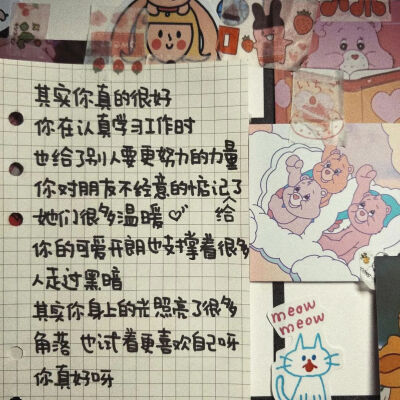 其实你真的很好
你在认真学习工作时
也给了别人要更努力的力量
你对朋友不经意的惦记给了
她们很多温暖♡
你的可爱开朗也支撑着很多
人走过黑暗
其实你身上的光照亮了很多
角落 也试着更喜欢自己呀
你真好呀
meow
meow